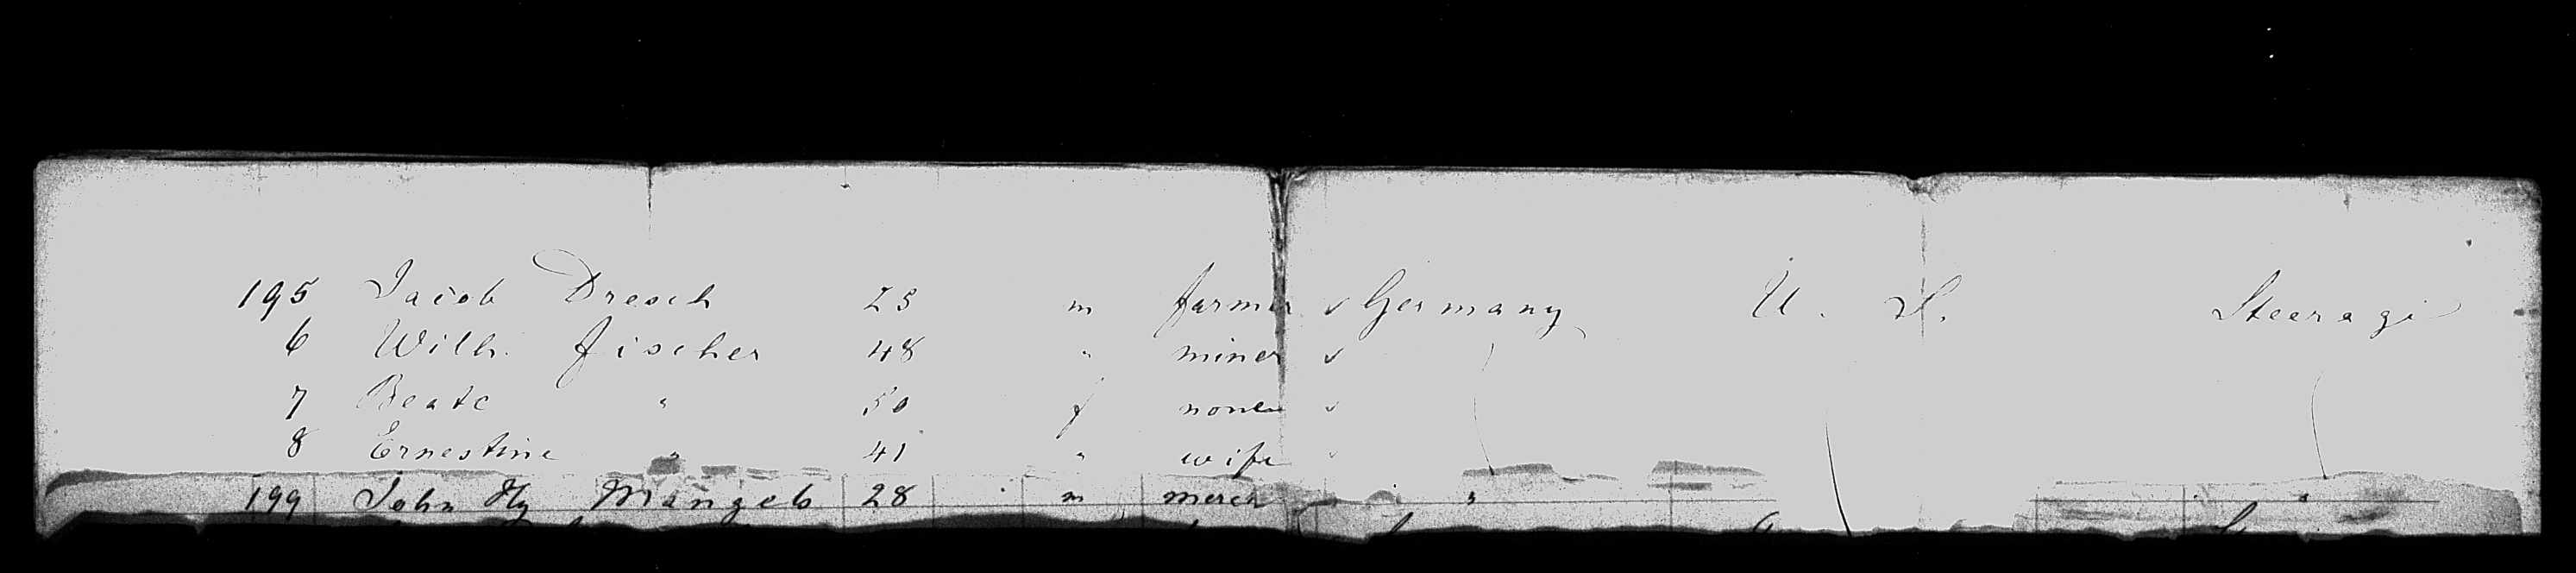 195 Jacob Dresch 25 m farmer v Germany U. S. Steerage
6 Wilh. Fischer 48 " miner v
7 Beate " 50 f none v
8 Ernestine " 41 " wife v
199 John Hy Mangels 28 m merch " "